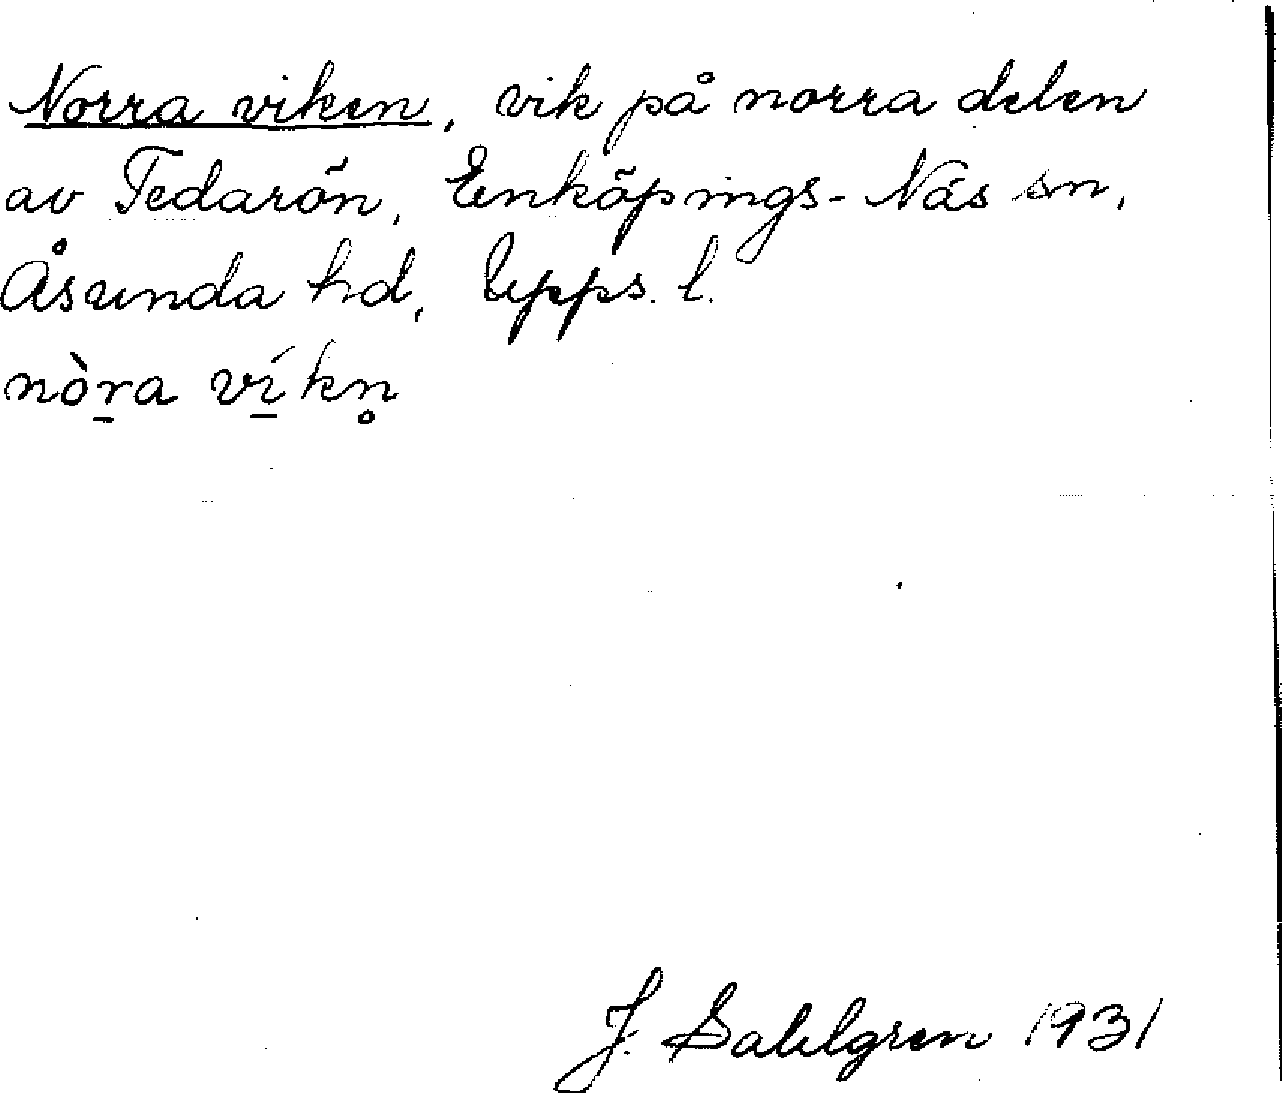 Norra viken, vik på norra delen
av Tedarön, Enköpings-Näs sn,
Åsunda hd, Upps. l.
nòr̠a ví̠kn̥
J. Sahlgren 1931